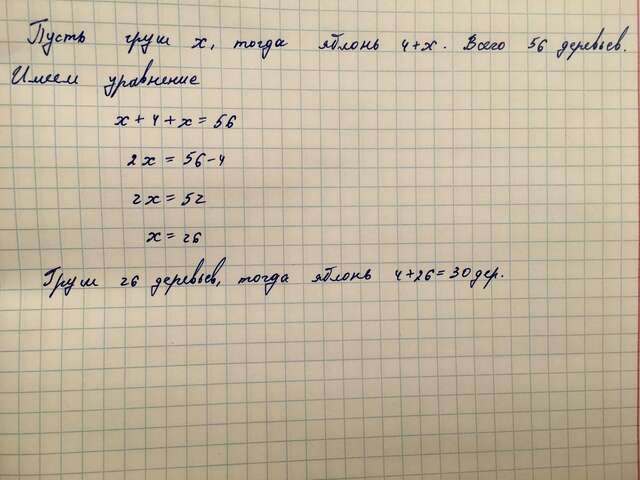 Пусть груш x, тогда яблонь 4+x. Всего 56 деревьев.
Имеем уравнение
x+4+x=56
2x=56-4
2x=52
x=26
Груш 26 деревьев, тогда яблонь 4+26=30дер.